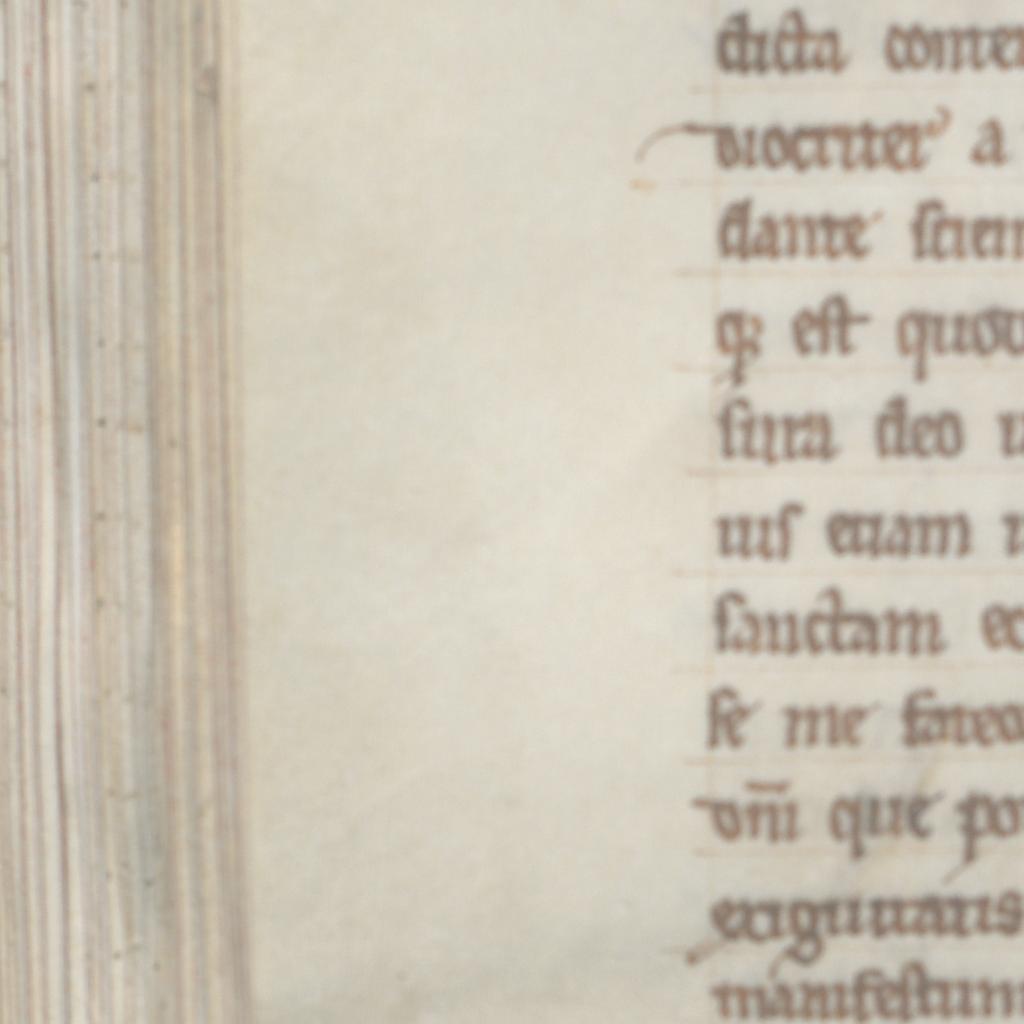 dicta conte
diocriter a
dante scien
qꝫ est quod
sura deo u
uis etiam
sanctam ec
se me fateo
dn̄i que po
exiguitatis
manifestum